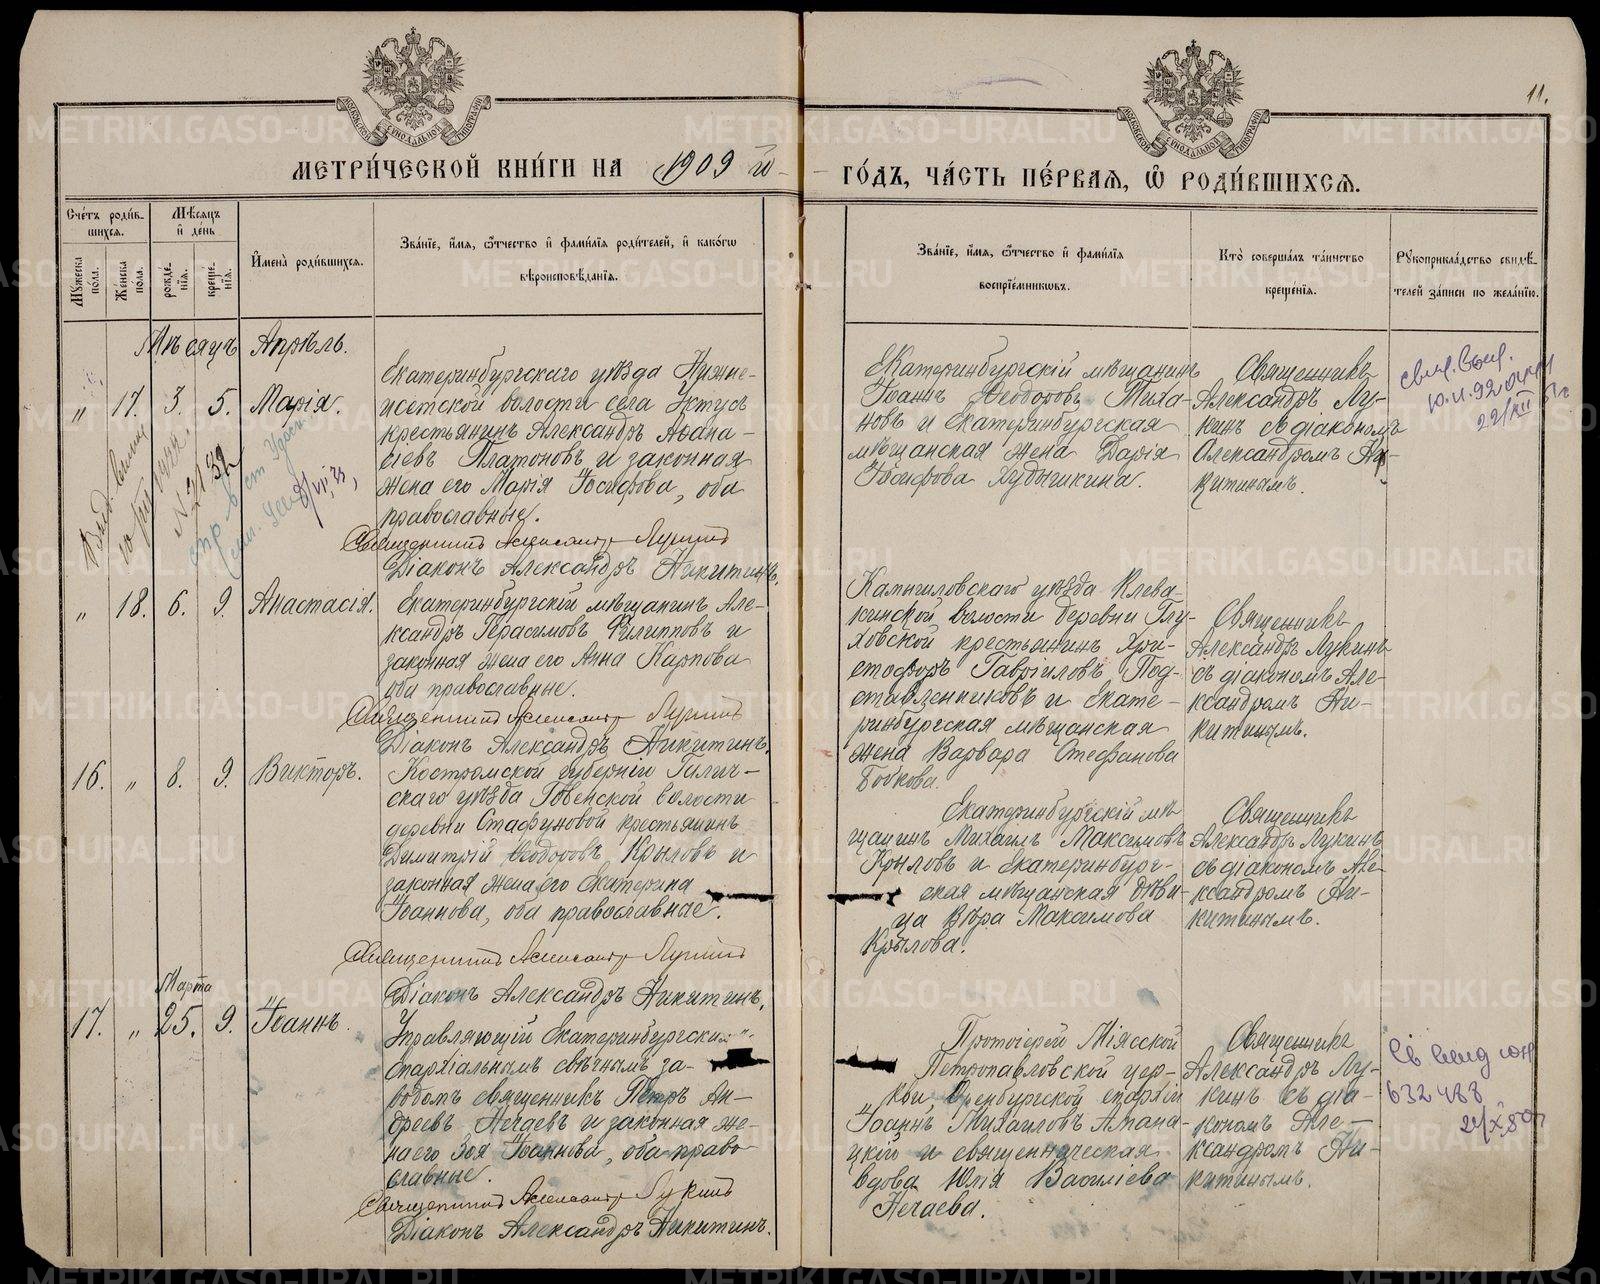 11.
МЕТРИ́ЧЕСКОЙ КНИ́ГИ НА 1909 й
ГО́ДЪ, ЧА́СТЬ ПЕ́РВАЯ, Ѡ РОДИ́ВШИХСЯ.
Сче́тъ роди́в-
шихся.
Мѣ́сяцъ
и де́нь
Мꙋ́жеска
по́ла.
Же́нска
по́ла.
рожде́-
нїя.
креще́-
нїя.
Имена̀ роди́вшихся.
Зва́нїе, и́мя, ѻ́тчество и фами́лїя роди́телей, и како́гѡ
вѣроисповѣ́данїя.
Зва́нїе, и́мя, ѻ́тчество и фами́лїя
воспрїе́мникѡвъ.
Кто̀ соверша́лъ та́инство
креще́нїя.
Рꙋкоприкла́дство свидѣ́-
телей за́писи по жела́нїю.
Мѣсяцъ Апрѣль.
" 17. 3. 5. Марія.
Екатеринбургскаго уѣзда Нижне-
исетской волости села Уктусъ
крестьянинъ Александръ Аѳана-
сіевъ Платоновъ и законная
жена его Марія Іосифова, оба
православные.
Священникъ Александръ Лукинъ
Діаконъ Александръ Никитинъ.
Екатеринбургскій мѣщанинъ
Іоаннъ Ѳеодоровъ Тиха-
новъ и Екатеринбургская
мѣщанская жена Дарія
Іосифова Худышкина.
Священникъ
Александръ Лу-
кинъ съ діакономъ
Александромъ Ни-
китинымъ.
N 2132
" 18. 6. 9. Анастасія.
Екатеринбургскій мѣщанинъ Але-
ксандръ Герасимовъ Филипповъ и
законная жена его Анна Карпова
оба православные.
Священникъ Александръ Лукинъ
Діаконъ Александръ Никитинъ.
Камышловскаго уѣзда Клева-
кинской волости деревни Глу-
ховской крестьянинъ Хри-
стофоръ Гавріиловъ Под-
ставленниковъ и Екате-
ринбургская мѣщанская
жена Варвара Стефанова
Бобкова.
Священникъ
Александръ Лукинъ
съ діакономъ Але-
ксандромъ Ни-
китинымъ.
16. " 8. 9. Викторъ.
Костромской губерніи Галич-
скаго уѣзда Говенской волости
деревни Стафуновой крестьянинъ
Димитрій Ѳеодоровъ Крыловъ и
законная жена его Екатерина
Іоаннова, оба православные.
Священникъ Александръ Лукинъ
Діаконъ Александръ Никитинъ.
Екатеринбургскій мѣ-
щанинъ Михаилъ Максимовъ
Крыловъ и Екатеринбург-
ская мѣщанская дѣви-
ца Вѣра Максимова
Крылова.
Священникъ
Александръ Лукинъ
съ діакономъ Але-
ксандромъ Ни-
китинымъ.
Марта
17. " 25. 9. Іоаннъ.
Управляющій Екатеринбургскимъ
епархіальнымъ свѣчнымъ за-
водомъ священникъ Петръ Ан-
дреевъ Нечаевъ и законная же-
на его Зоя Іоаннова, оба право-
славные.
Священникъ Александръ Лукинъ
Діаконъ Александръ Никитинъ.
Протоіерей Міясской
Петропавловской цер-
кви, Оренбургской епархіи
Іоаннъ Михаиловъ Агана-
цкій и священническая
вдова Юлія Василіева
Нечаева.
Священникъ
Александръ Лу-
кинъ съ діа-
кономъ Але-
ксандромъ Ни-
китинымъ.
632488
METRIKI.GASO-URAL.RU